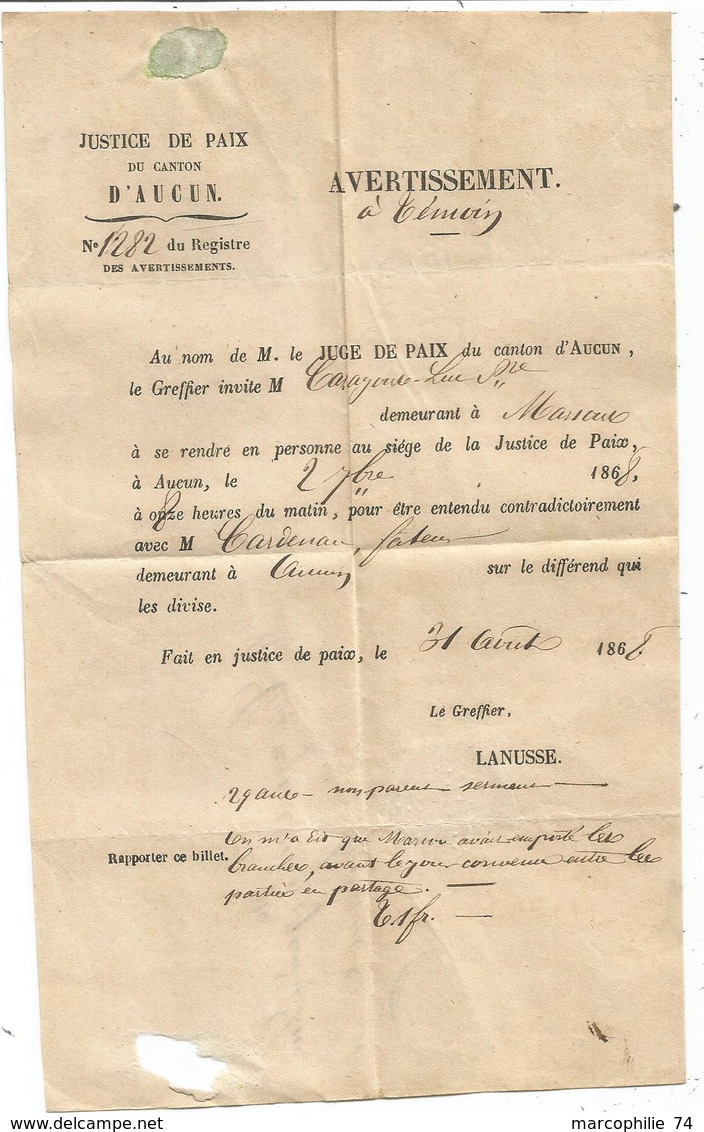 JUSTICE DE PAIX
DU CANTON
D'AUCUN.
AVERTISSEMENT.
à témoin
N° 1282 du Registre
DES AVERTISSEMENTS.
Au nom de M. le JUGE DE PAIX du canton d'AUCUN,
le Greffier invite M Luc
demeurant à
à se rendre en personne au siége de la Justice de Paix,
à Aucun, le 2 7bre 1868,
à onze heures du matin, pour être entendu contradictoirement
avec M
demeurant à Aucun sur le différend qui
les divise.
Fait en justice de paix, le 31 août 1868
Le Greffier,
LANUSSE.
29 ans – non parent serment —
On m'a dit que avait emporté les
Rapporter ce billet.
branches, avant le jour convenu entre les
parties en partage. —
T. 1 fr. —
marcophilie 74